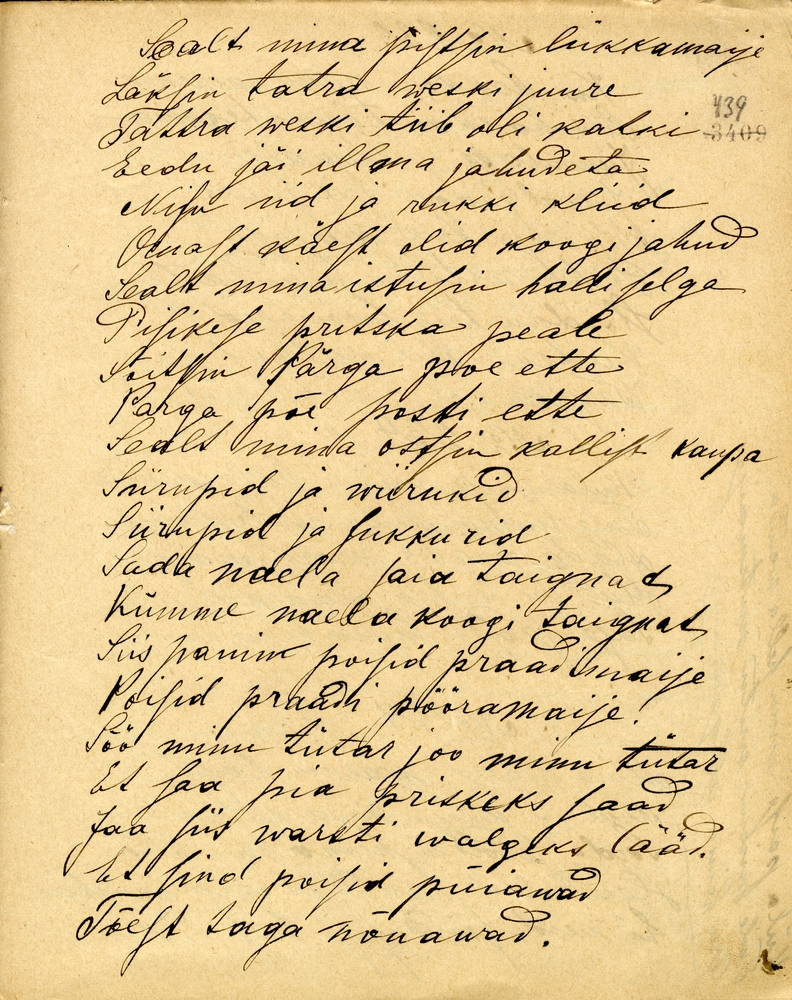 Sealt mina pistsin lükkamaije
Läksin tatra weski juure
Tattra weski tiib oli katki
439
3409
Eedu jäi illma jahudeta
Nisu iid ja rukki kliid
Omast käest olid koogi jahud
Sealt mina istusin halli selga
Pisikese pritska peale
Sõitsin Pärga poe ette
Parga põe posti ette
Sealt mina ostsin kallist kaupa
Siirupid ja wiirukid
Siirupid ja sukkurid
Sada naela saia taignat
Kümme naela koogi taignat
Siis panin poisid praadimaije
Poisid praadi pööramaije.
Söö minu tütar joo minu tütar
Et saa pia priskeks saad
Jaa siis warsti walgeks lääd.
Et sind poisid püiawad
Tõest taga nõuawad.